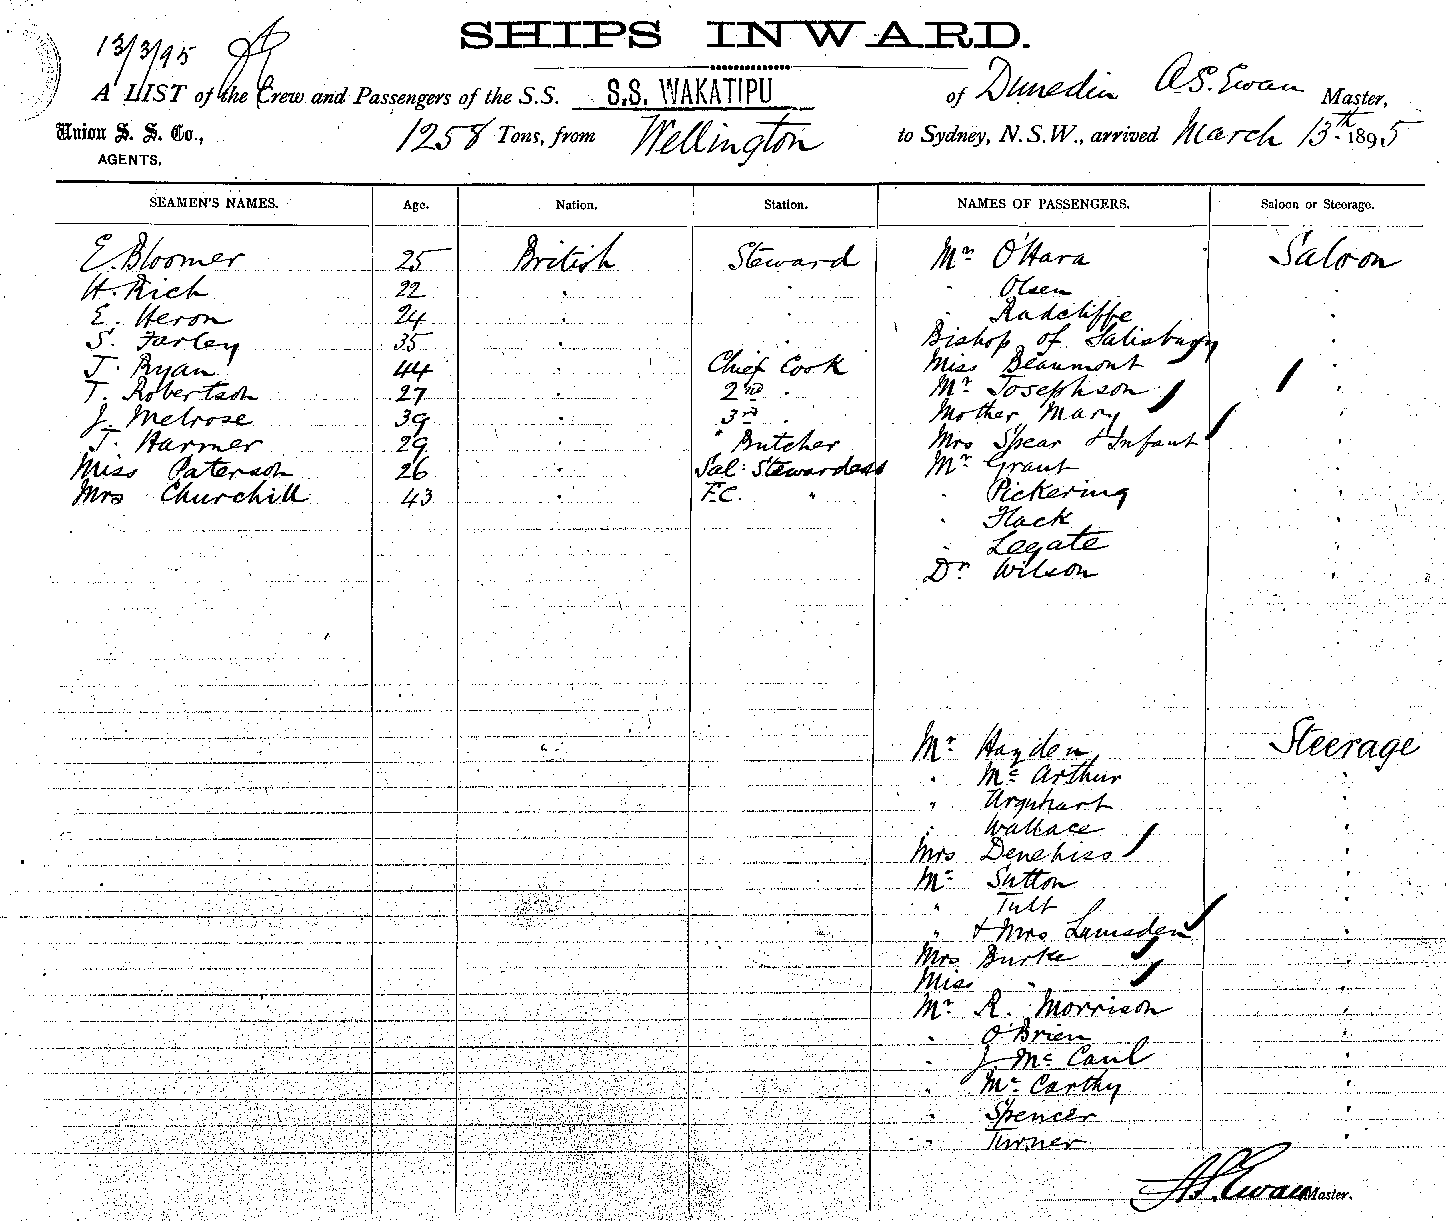 SHIPS INWARD.
13/3/95
A LIST of the Crew and Passengers of the S.S. S.S. WAKATIPU of Dunedin A S. Ewan Master,
Union S. S. Co., 1258 Tons, from Wellington to Sydney, N.S.W., arrived March 13th 1895
AGENTS,
SEAMEN'S NAMES. Age. Nation. Station. NAMES OF PASSENGERS. Saloon or Steerage.
E. Bloomer 25 British Steward Mr O'Hara Saloon
H. Rich 22 " " " Olsen "
E. Heron 24 " " " Radcliffe "
S. Farley 35 " " Bishop of Salisbury "
J. Ryan 44 " Chief Cook Miss Beaumont "
T. Robertson 27 " 2nd " Mr Josephson "
J. Melrose 39 " 3rd " Mother Mary "
T. Harmer 29 " " Butcher Mrs Spear & Infant "
Miss Paterson 26 " Sal: Stewardess Mr Grant "
Mrs Churchill 43 " F.C. " " Pickering "
" Flack "
" Legate "
Dr Wilson "
Mr Hayden Steerage
" Mc Arthur "
" Urquhart "
" Wallace "
Mrs Denehiss "
Mr Sutton "
" Tult "
" & Mrs Lumsden "
Mrs Burke "
Miss " "
Mr R. Morrison "
" O'Brien "
" J. Mc Caul "
" Mc Carthy "
" Spencer "
" Turner "
A S. Ewan Master.